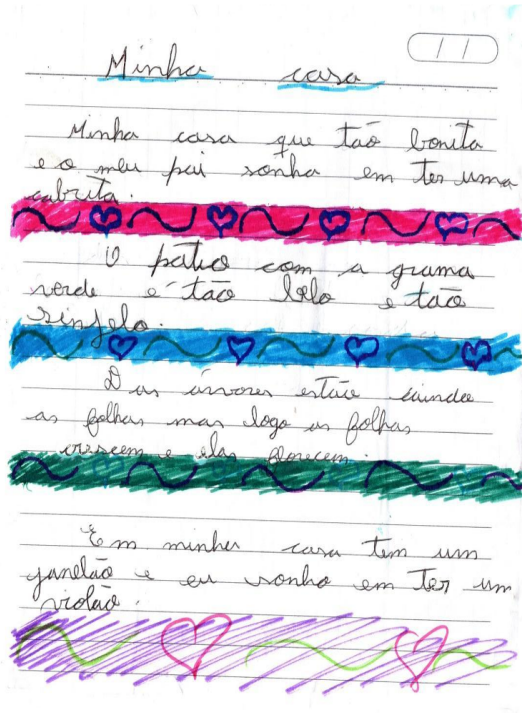 11
Minha casa
Minha casa que tão bonita
e o meu pai sonha em ter uma
cabrita.
O pátio com a grama
verde é tão belo e tão
sinjelo.
D as árvores estão caindo
as folhas mas logo as folhas
crescem e elas florecem.
Em minha casa tem um
janelão e eu sonho em ter um
violão.